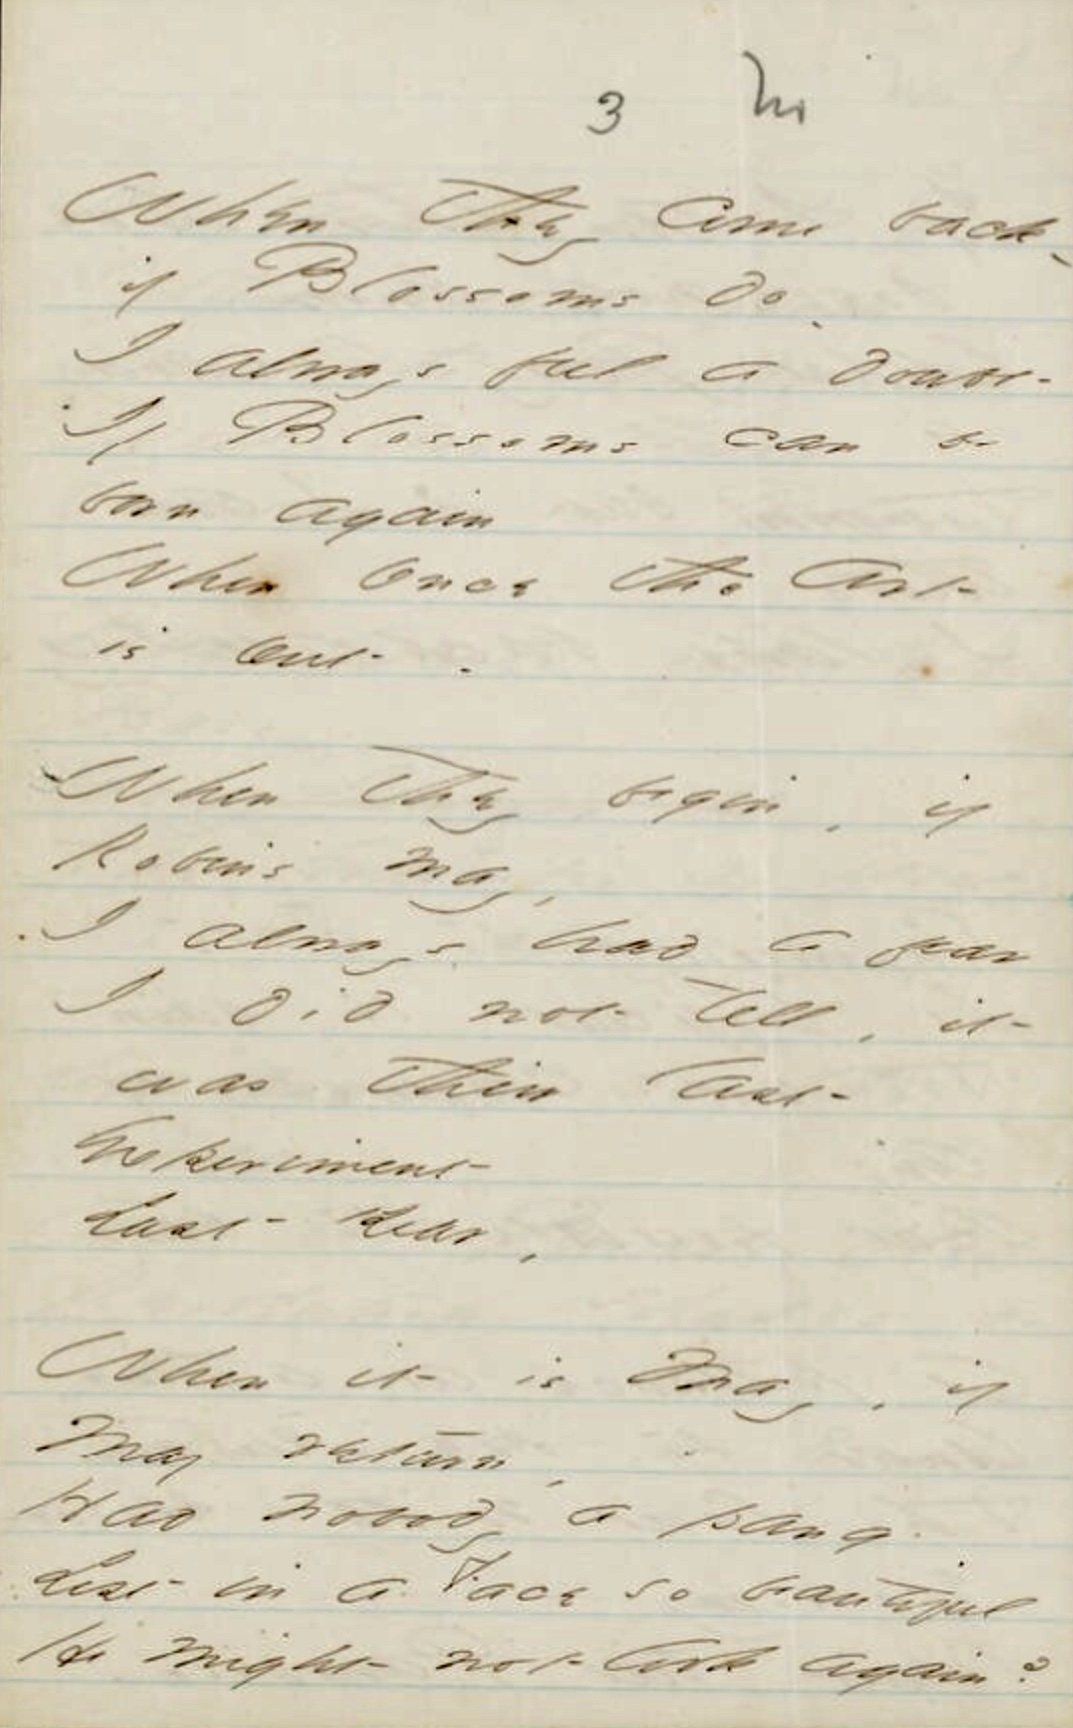 3
When They come back -
if Blossoms do -
I always feel a doubt -
If Blossoms can be
born again
When once the Art
is out -
When They begin, if
Robins may,
I always had a fear
I did not tell, it
was their last
Experiment
Last Year,
When it is May, if
May return,
Had nobody a pang
Lest in a Face so beautiful
He might not look again?